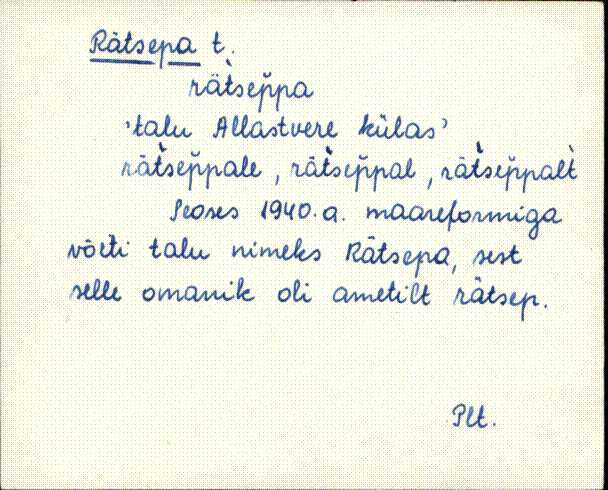 Rätsepa t.
rät̀sep̆pa
'talu Allastvere külas'
rät̀sep̆pale, rät̀sep̆pal, rät̀sep̆palt̀
Seoses 1940. a. maareformiga
võeti talu nimeks Rätsepa, sest
selle omanik oli ametilt rätsep.
Plt.